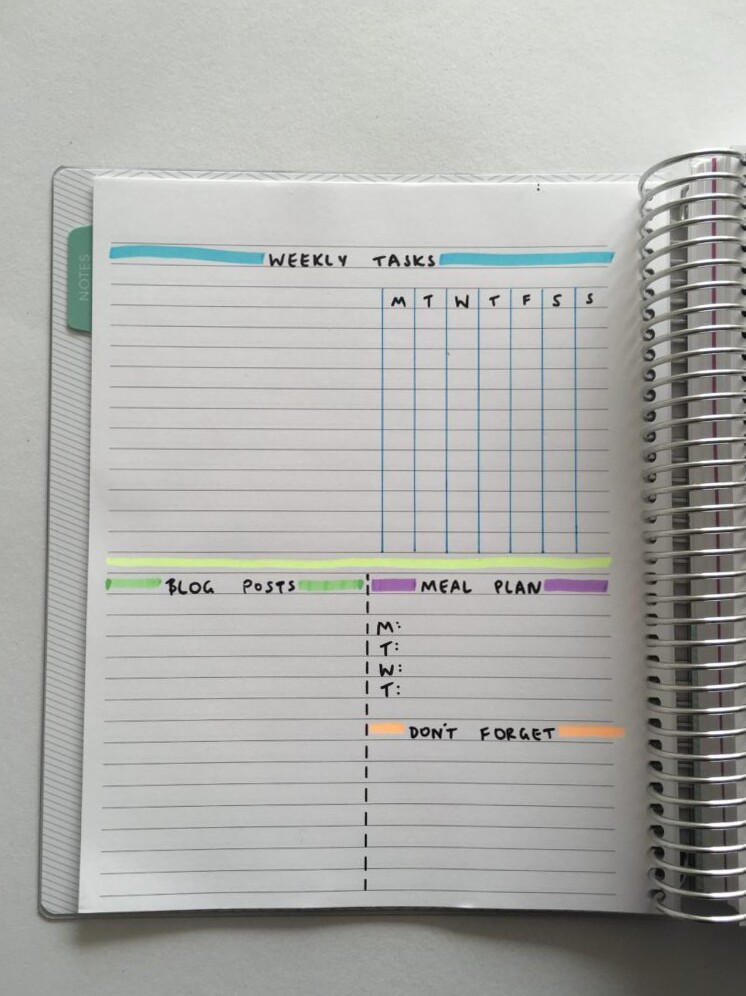 NOTES
WEEKLY TASKS
M T W T F S S
BLOG POSTS
MEAL PLAN
M:
T:
W:
T:
DON'T FORGET